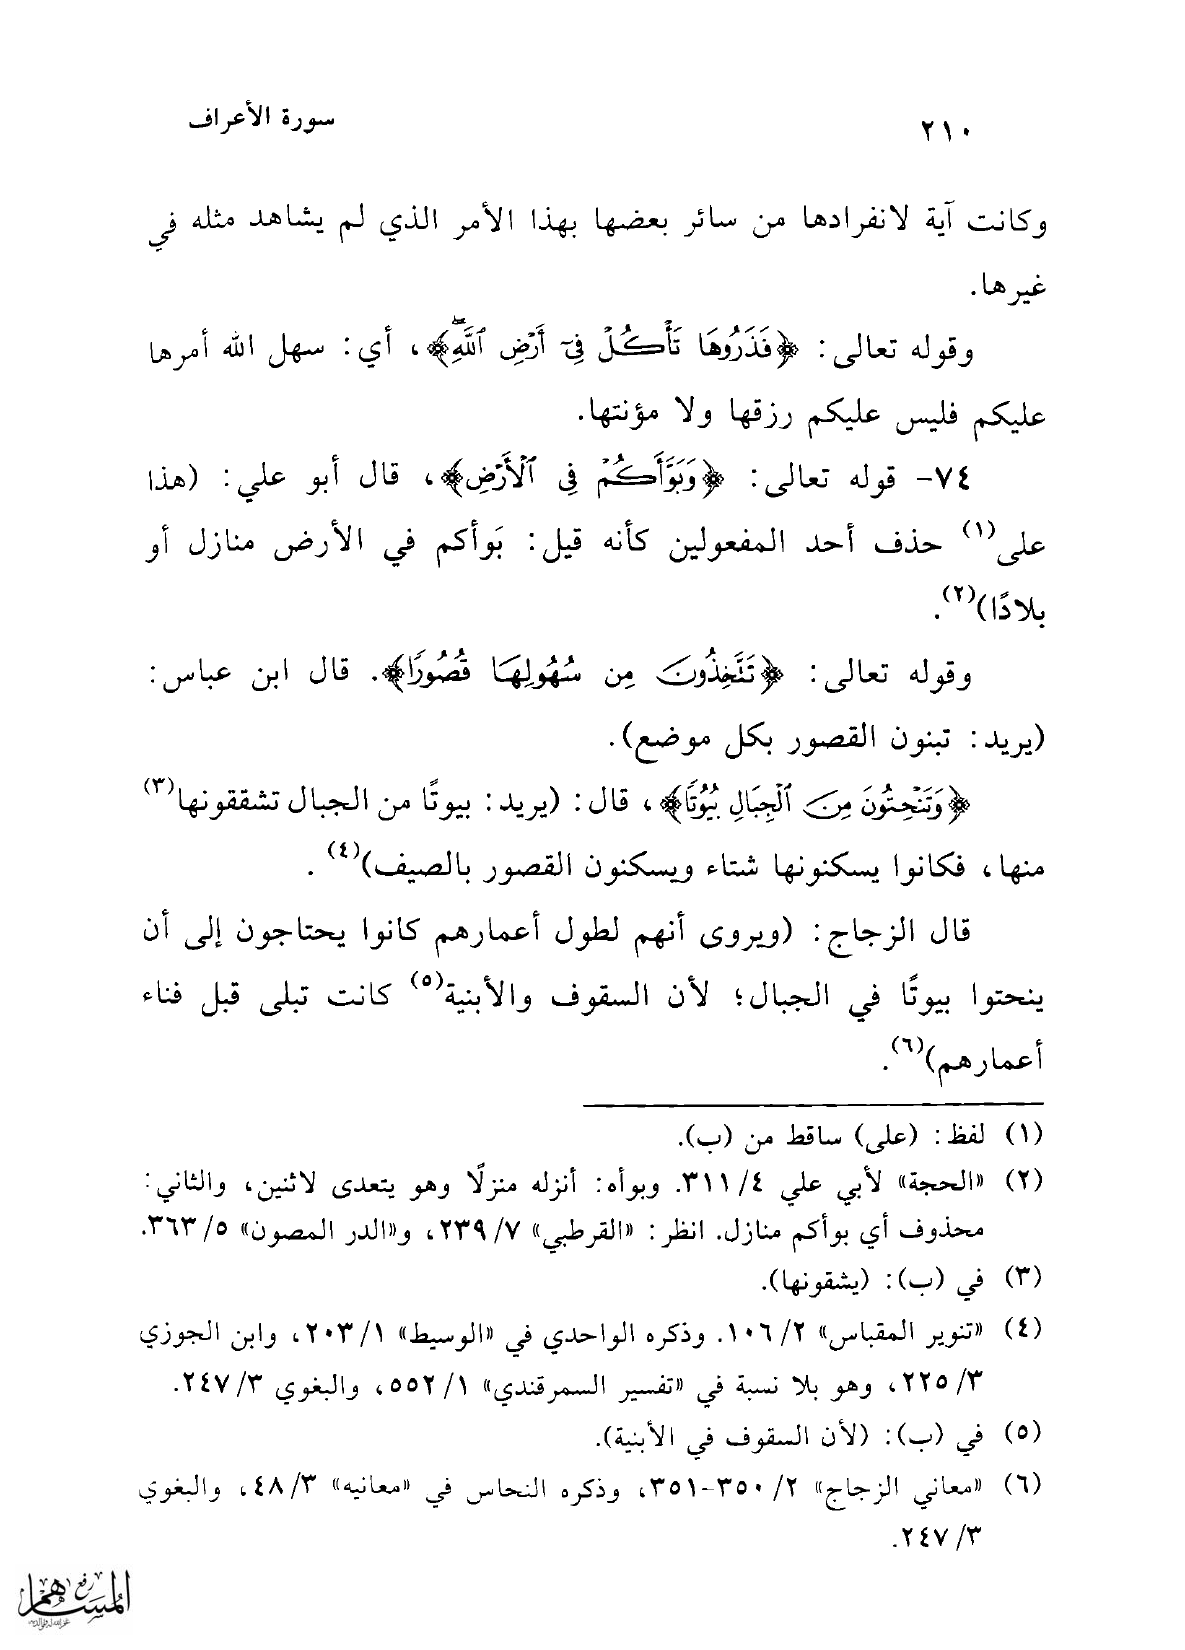 ٢١٠ سورة الأعراف
وكانت آية لانفرادها من سائر بعضها بهذا الأمر الذي لم يشاهد مثله في
غيرها.
وقوله تعالى: ﴿فَذَرُوهَا تَأْكُلْ فِىٓ أَرْضِ ٱللَّهِۖ﴾، أي: سهل الله أمرها
عليكم فليس عليكم رزقها ولا مؤنتها.
٧٤- قوله تعالى: ﴿وَبَوَّأَكُمْ فِى ٱلْأَرْضِ﴾، قال أبو علي: (هذا
على(١) حذف أحد المفعولين كأنه قيل: بَوأكم في الأرض منازل أو
بلادًا)(٢).
وقوله تعالى: ﴿تَتَّخِذُونَ مِن سُهُولِهَا قُصُورًا﴾. قال ابن عباس:
(يريد: تبنون القصور بكل موضع).
﴿وَتَنْحِتُونَ مِنَ ٱلْجِبَالِ بُيُوتًا﴾، قال: (يريد: بيوتًا من الجبال تشققونها(٣)
منها، فكانوا يسكنونها شتاء ويسكنون القصور بالصيف)(٤).
قال الزجاج: (ويروى أنهم لطول أعمارهم كانوا يحتاجون إلى أن
ينحتوا بيوتًا في الجبال؛ لأن السقوف والأبنية(٥) كانت تبلى قبل فناء
أعمارهم)(٦).
(١) لفظ: (على) ساقط من (ب).
(٢) «الحجة» لأبي علي ٤/ ٣١١. وبوأه: أنزله منزلًا وهو يتعدى لاثنين، والثاني:
محذوف أي بوأكم منازل. انظر: «القرطبي» ٧/ ٢٣٩، و«الدر المصون» ٥/ ٣٦٣.
(٣) في (ب): (يشقونها).
(٤) «تنوير المقباس» ٢/ ١٠٦. وذكره الواحدي في «الوسيط» ١/ ٢٠٣، وابن الجوزي
٣/ ٢٢٥، وهو بلا نسبة في «تفسير السمرقندي» ١/ ٥٥٢، والبغوي ٣/ ٢٤٧.
(٥) في (ب): (لأن السقوف في الأبنية).
(٦) «معاني الزجاج» ٢/ ٣٥٠-٣٥١، وذكره النحاس في «معانيه» ٣/ ٤٨، والبغوي
٣/ ٢٤٧.